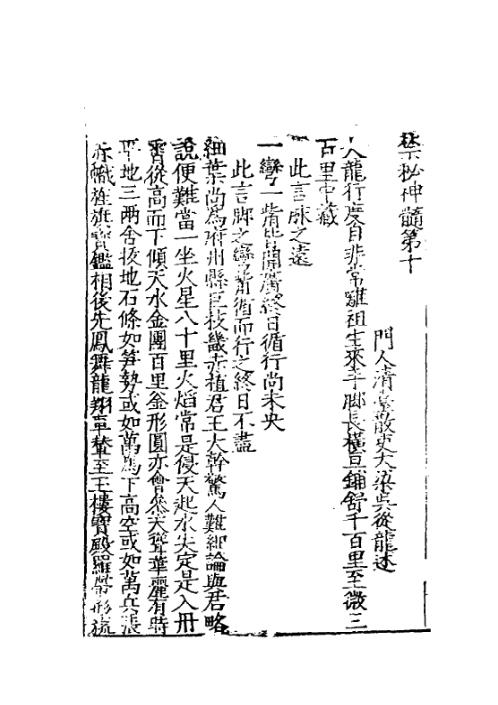 禁秘神髓第十
門人清臺散史大梁吳從龍述
大龍行度自非常離祖生來手脚長橫亘鋪舒千百里至微三
百里中藏
此言脉之遠
一彎一背皆開廣終日循行尚未央
此言脚之彎背循而行之終日不盡
細葉尚爲府州縣巨枝幾亦植君王大幹驚人難細論與君略
說便難當一坐火星八十里火焰常是侵天起水尖定是入冊
霄從高而下傾天水金團百里釜形圓亦會參天聳華麗有時
平地三两舍挨地石條如笋勢或如萬馬下高空或如萬兵張
赤幟旌旗寶鑑相後先鳳舞龍翔章輦至玉樓寶殿羅帶形